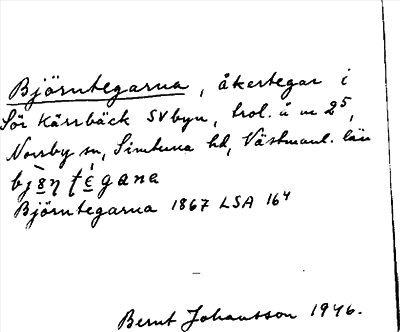 Björntegarna, åkertegar i
Sör Kärrbäck SV byn, trol. å m 2⁵,
Norrby sn, Simtuna hd, Västmanl. län
bjö̀ṇ té̱gana
Björntegarna 1867 LSA 16⁴
Bernt Johansson 1946.